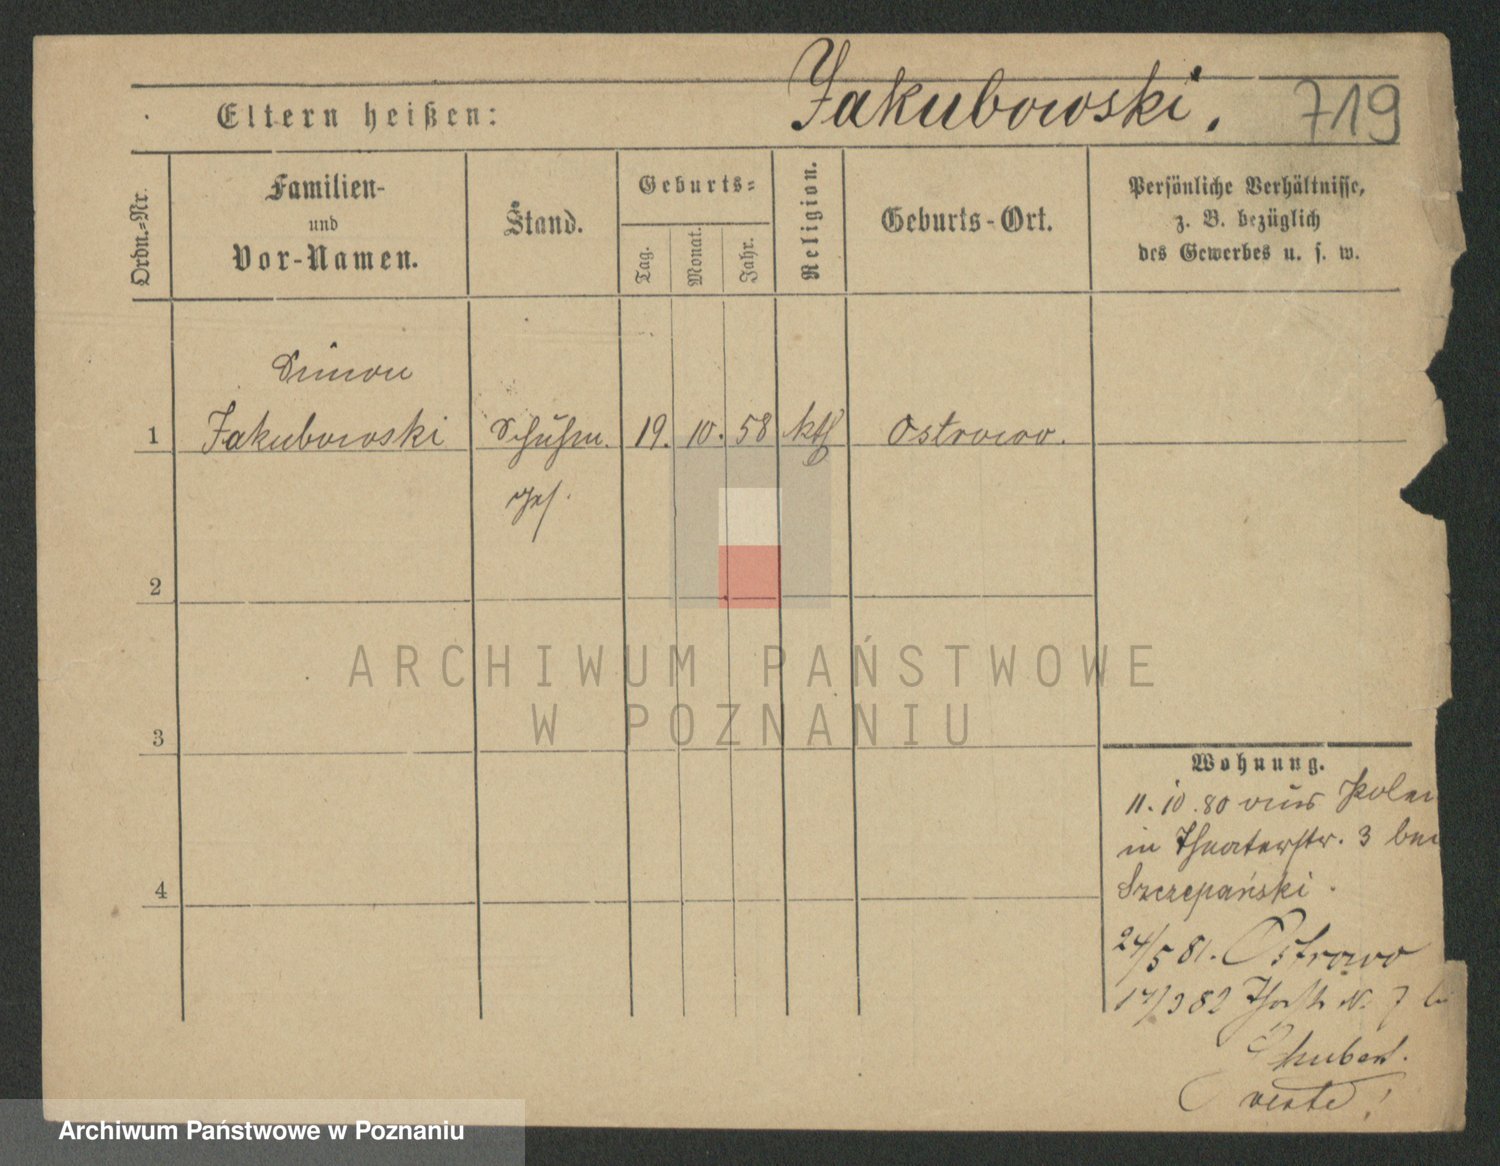 Eltern heißen:
Jakubowski.
719
Ordn.-Nr.
Familien-
und
Vor-Namen.
Stand.
Geburts-
Tag.
Monat.
Jahr.
Religion.
Geburts-Ort.
Persönliche Verhältnisse,
z. B. bezüglich
des Gewerbes u. s. w.
Simon
1 Jakubowski Schuhm. 19. 10. 58 kth Ostrowo.
ges.
2
3
4
Wohnung.
11. 10. 80 aus Polen
in Theaterstr. 3 bei
Szczepański.
24/5 81. Ostrowo
17/3 82 N. 7 bei
Schubert.
verte!
ARCHIWUM PAŃSTWOWE
W POZNANIU
Archiwum Państwowe w Poznaniu